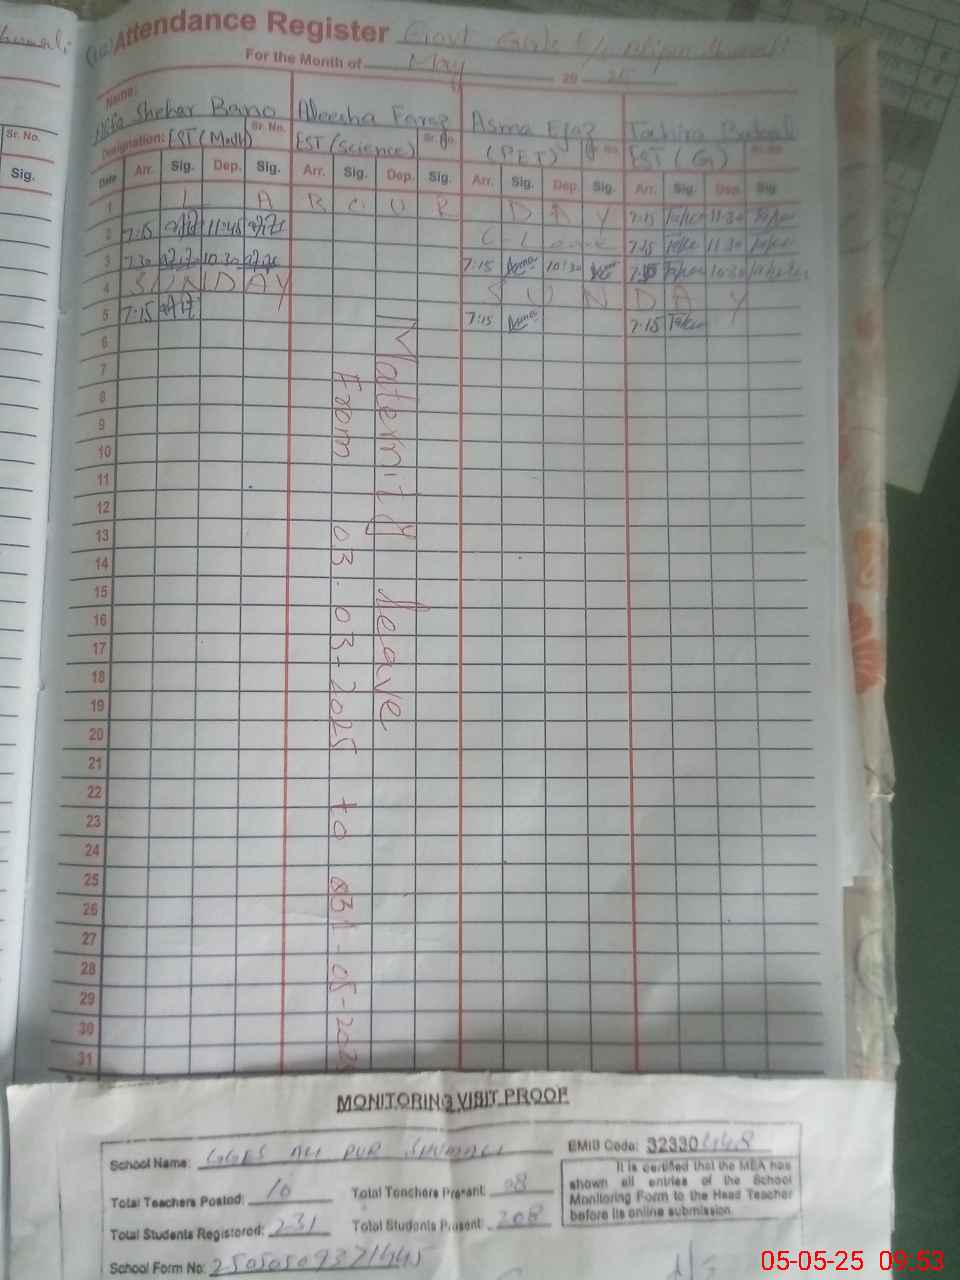 Attendance Register Govt Girls E/S Alipur Shumali
For the Month of May 20 25
Name:
Shehar Bano Aleesha Faraz Asma Ejaz Tahira
Designation: EST (Math) Sr. No. EST (Science) Sr. No. (PET) EST (G)
Date Arr. Sig. Dep. Sig. Arr. Sig. Dep. Sig. Arr. Sig. Dep. Sig. Arr. Sig. Dep. Sig.
1 L A B O U R D A Y 7:15 11:30
2 7:15 11:45 C-Leave 7:15 11:30
3 7:30 10:30 7:15 Asma 10:30 10:30
4 S U N D A Y S U N D A Y
5 7:15 7:15 Asma 7:15
6
7
8
9
10
11
12
13
14
15
16
17
18
19
20
21
22
23
24
25
26
27
28
29
30
31
Maternity leave
From 03-03-2025 to 31-05-202
Sr. No.
Sig.
MONITORING VISIT PROOF
School Name: GGES ALI PUR SHUMALI EMIS Code: 32330448
Total Teachers Posted: 10 Total Teachers Present: 08
Total Students Registered: 231 Total Students Present: 208
School Form No: 25050509371445
It is certified that the MEA has
shown all entries of the School
Monitoring Form to the Head Teacher
before its online submission.
05-05-25 09:53